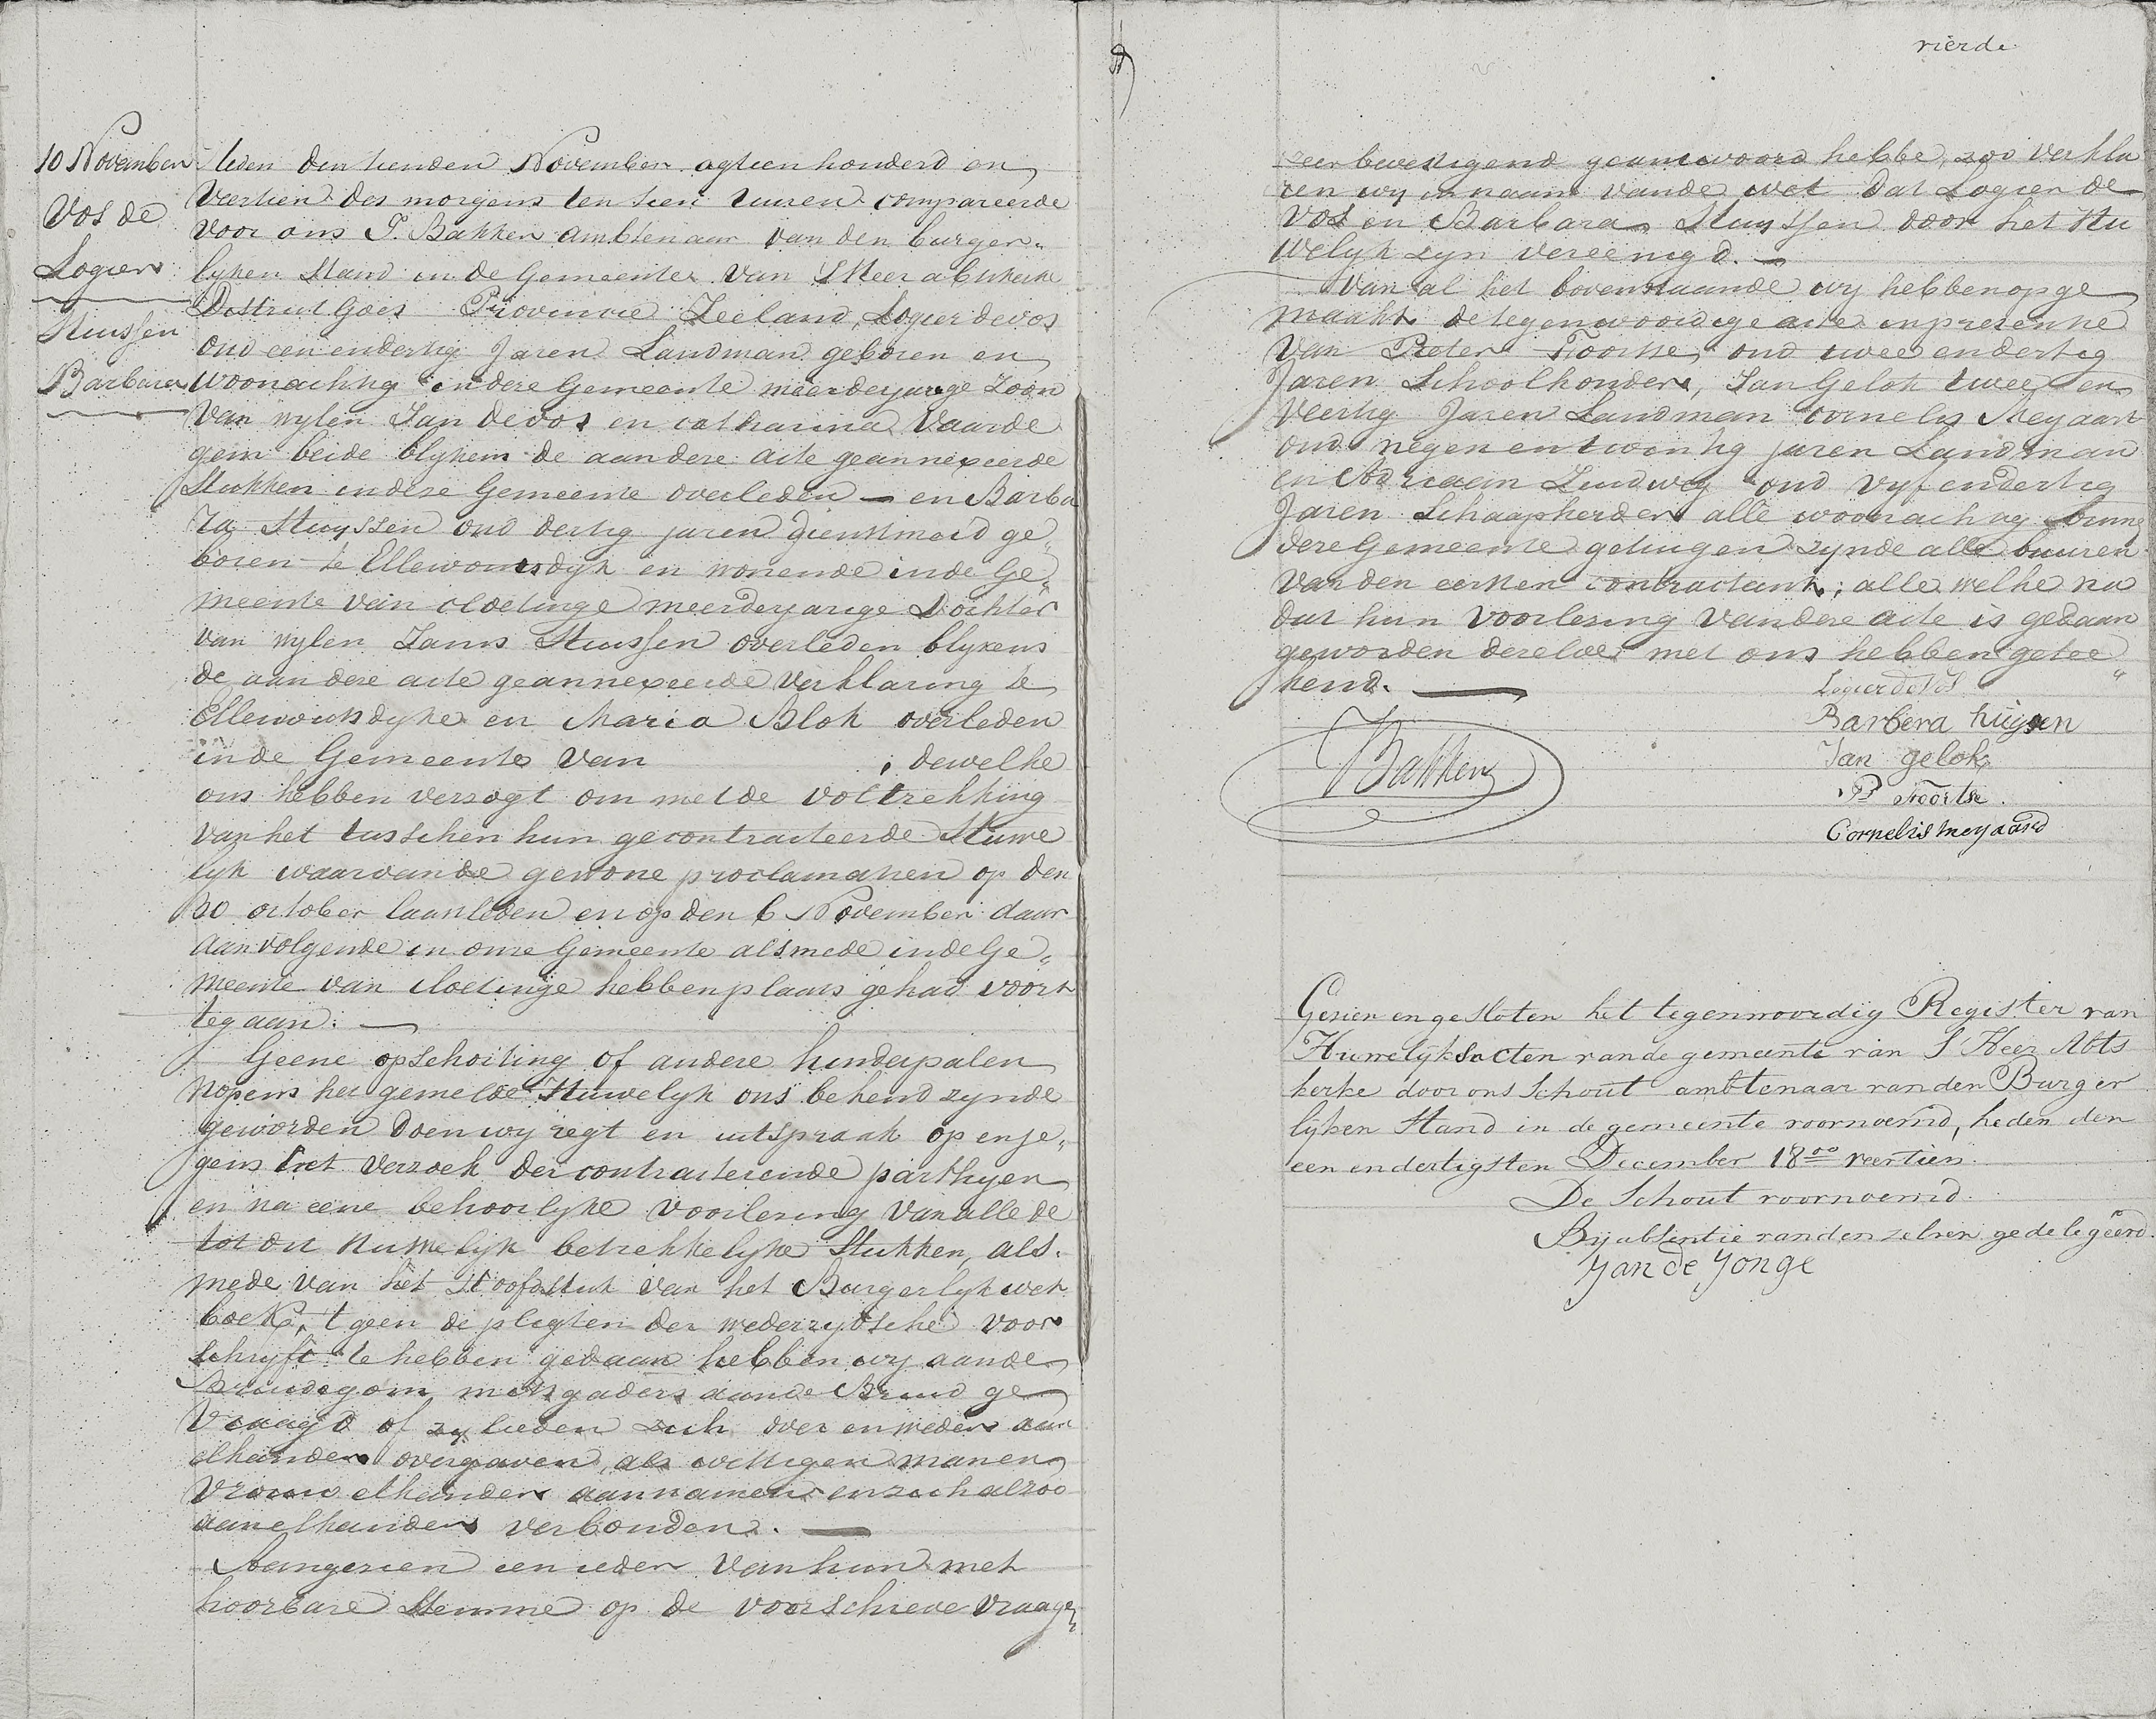 10 November
Vos de
Logier
Huissen
Barbara
Heden den tienden November agtien honderd en
veertien des morgens ten tien uuren compareerde
voor ons P. Bakker ambtenaar van den burger„
lyken Stand in de Gemeente van SHeer abtskerke
District Goes Provincie Zeeland, Logier de vos
oud een endertig Jaren Landman geboren en
woonachtig in dese Gemeente meerderjarige Zoon
van wylen Jan de vos en catharina Vaarde
gem beide blykens de aan dere acte geannexeerde
Stukken in dese Gemeente overleden — en Barba
ra Huyssen oud dertig jaren dienstmeid ge„
boren te Ellewoutsdyk en wonende in de Ge„
meente van cloetinge meerderjarige Dochter
van wylen Janis Huissen overleden blykens
de aan dere acte geannexeerde verklaring te
Ellewoutsdyke en Maria Blok overleden
in de Gemeente van ; dewelke
ons hebben versogt om met de voltrekking
van het tusschen hun gecontracteerde Huwe
lyk waarvan de gewone proclamatien op den
30 october laatsleden en op den 6 November daar
aanvolgende in onse Gemeente alsmede in de Ge„
meente van cloetinge hebben plaats gehad voort
te gaan. —
Geene opschorting of andere hinderpalen
nopens het gemelde Huwelyk ons bekend zynde
geworden doen wy regt en uitspraak op enje„
gens het versoek der contracterende parthyen
en na eene behoorlyke voorlesing van alle de
tot dit Huwelyk betrekkelyke Stukken, als„
mede van het Hoofdstuk van het Burgerlyk wet
boek, t geen de pligten der wederzydsche voor
schryft te hebben gedaan hebben wy aan de
Bruidegom mitsgaders aan de Bruid ge
vraagd of zy lieden zich over en weder aan
elkander overgaven, als wettigen man en
vrouw elkander aannamen en zich alzoo
aan elkander verbonden. —
Aangesien een ieder van hun met
hoorbare Stemme op de voorschreve vraage
vierde
zeer bevestigend geantwoord hebbe, zoo verkla
ren wy in naam van de wet dat Logier de
Vos en Barbara Huyssen door het Hu
welyk zyn vereenigd. —
Van al het bovenstaande wy hebben opge
maakt de tegenwoordige acte in presentie
van Pieter Foortse oud twee endertig
Jaren Schoolhouder, Jan Gelok twee en
veertig Jaren Landman cornelis Meyaart
oud negen en twintig jaren Landman
en Adriaan Ludwig oud vyf endertig
Jaren Schaapherder alle woonachtig binne
dere Gemeente getuigen zynde alle buuren
van den eersten contractant; alle welke na
dat hun voorlesing van dere acte is gedaan
geworden deselve met ons hebben getee„
kend. —
Logier de Vos
Barbera huijsen
Jan gelok
P Foortse
Cornelis meyaard
Bakker
Gesien en gesloten het tegenwoordig Register van
Huwelijksacten van de gemeente van S Heer Abts
kerke door ons Schout ambtenaar van den Burger
lyken Stand in de gemeente voornoemd, heden den
een en dertigsten December 18oo veertien.
De Schout voornoemd.
Bij absentie van den zelven gedelegeerd.
Jan de Jonge